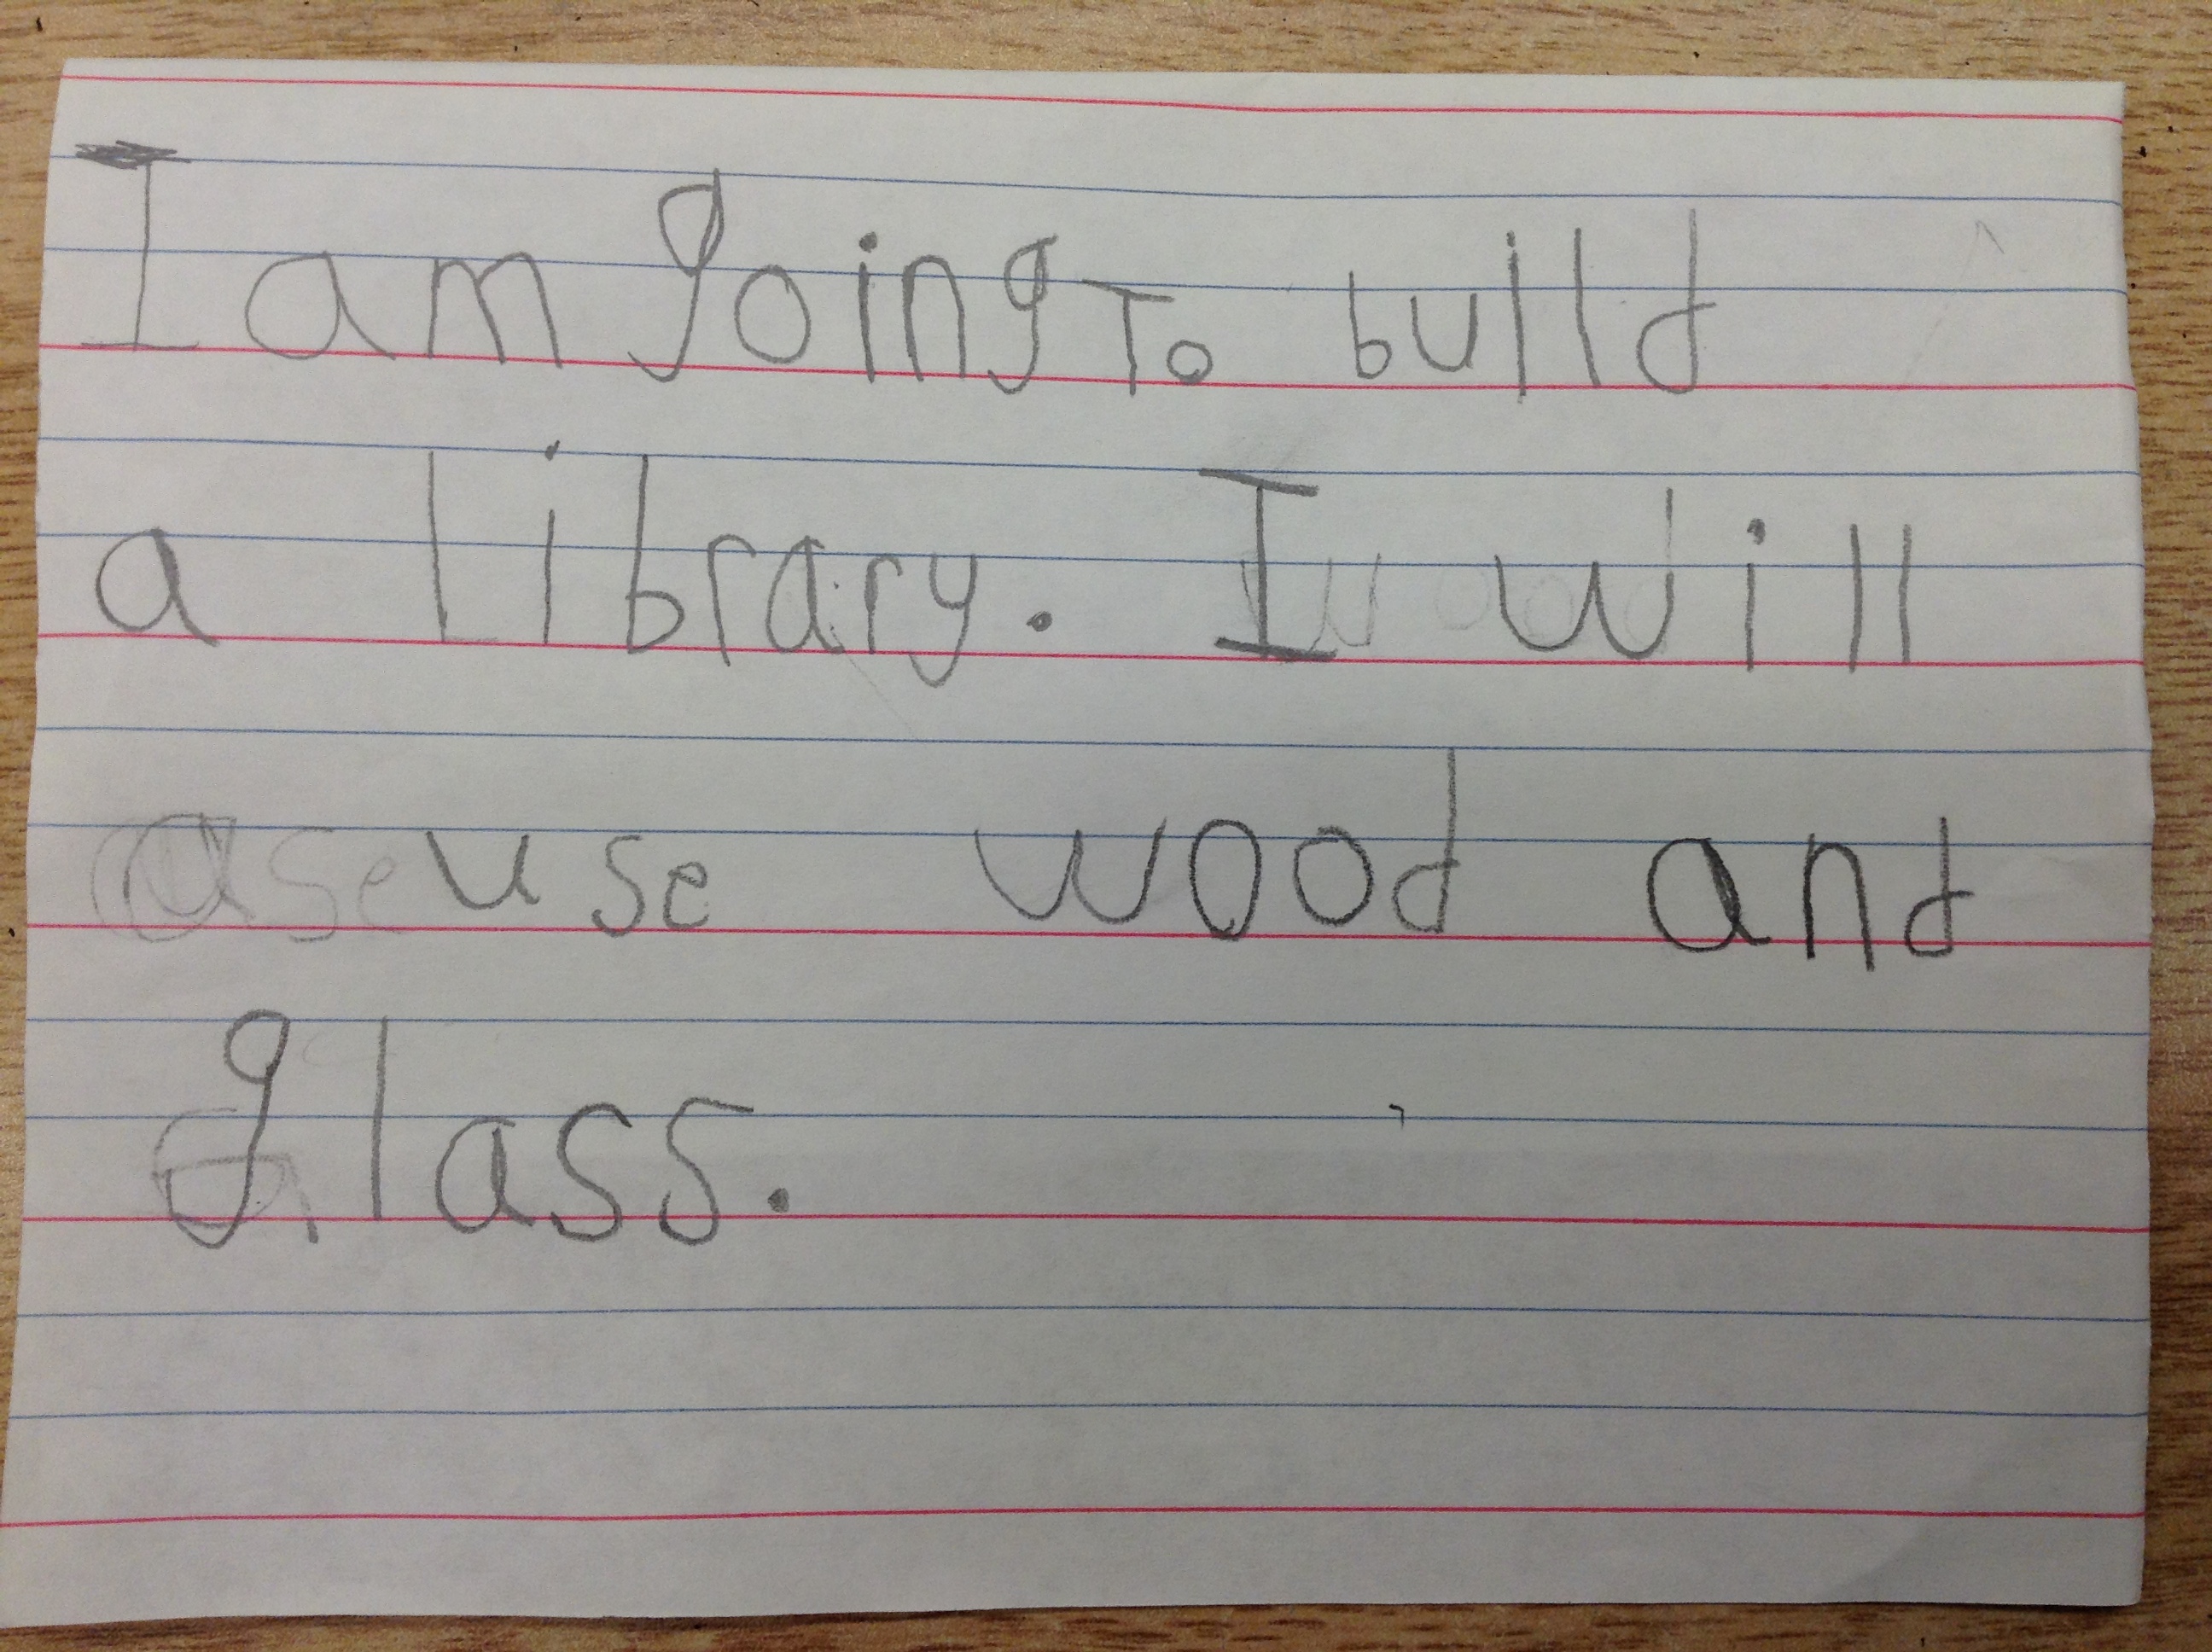 I am going To build
a Library. I will
use wood and
glass.